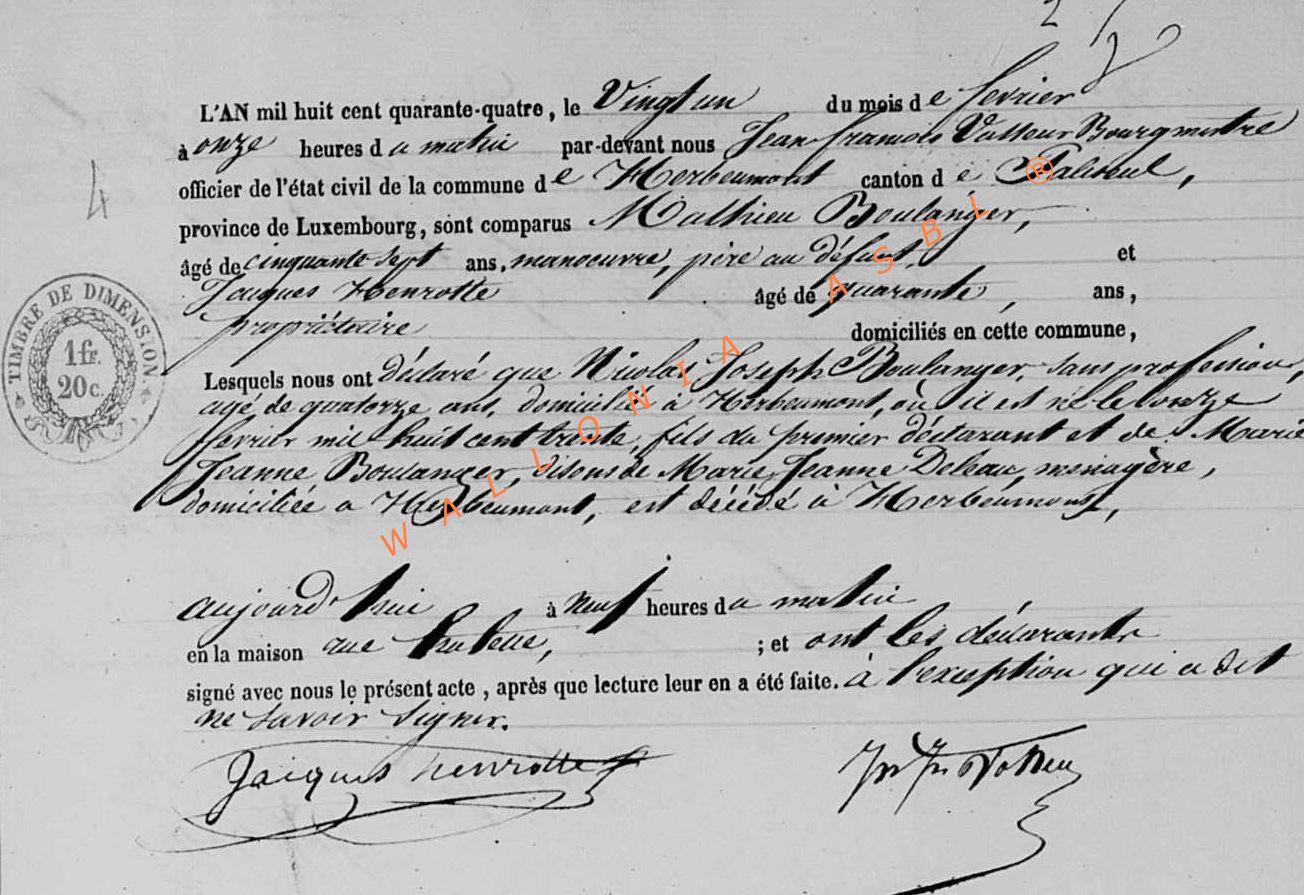 L'AN mil huit cent quarante-quatre, le Vingt un du mois de fevrier
à onze heures du matin par-devant nous Jean francois Bourgmestre
officier de l'état civil de la commune de Herbeumont canton de Paliseul,
province de Luxembourg, sont comparus Mathieu Boulanger,
âgé de cinquante sept ans, manoeuvre, père au défunt, et
4
Jacques Henrotte âgé de quarante, ans,
propriétaire domiciliés en cette commune,
TIMBRE DE DIMENSION.
1 fr.
20 c.
Lesquels nous ont déclaré que Nicolas Joseph Boulanger, sans profession,
agé de quatorze ans, domicilié à Herbeumont, où il est né le onze
fevrier mil huit cent trente, fils du premier déclarant et de Marie
Jeanne Boulanger, disons de Marie Jeanne menagère,
domiciliée a Herbeumont, est décédé à Herbeumont,
aujourd'hui à neuf heures du matin
en la maison rue ; et ont les déclarants
signé avec nous le présent acte, après que lecture leur en a été faite. à l'exeption qui a dit
ne savoir signer.
Jacques henrotte
WALLONIA ASBL ®